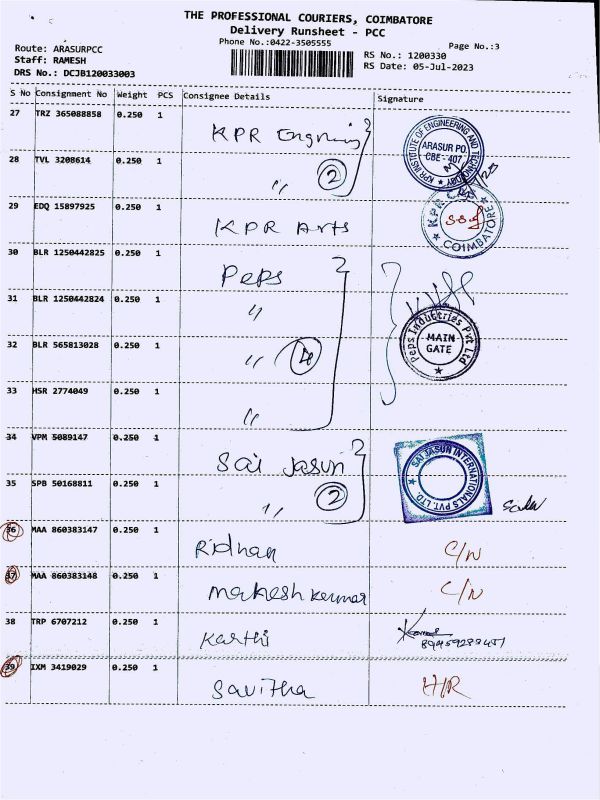 THE PROFESSIONAL COURIERS, COIMBATORE
Delivery Runsheet - PCC
Phone No.:0422-3505555
Page No.:3
Route: ARASURPCC
Staff: RAMESH
DRS No.: DCJB120033003
RS No.: 1200330
RS Date: 05-Jul-2023
S No Consignment No Weight PCS Consignee Details Signature
27 TRZ 365088858 0.250 1 KPR
KPR INSTITUTE OF ENGINEERING AND TECHNOLOGY
ARASUR PO.
CBE - 407
28 TVL 3208614 0.250 1 " 2
29 EDQ 15897925 0.250 1 KPR Arts
KPR
COIMBATORE
30 BLR 1250442825 0.250 1 Peps
31 BLR 1250442824 0.250 1 "
Peps Industries Pvt Ltd
MAIN
GATE
32 BLR 565813028 0.250 1 " 4
33 HSR 2774049 0.250 1 "
34 VPM 5089147 0.250 1 Sai Jasun
SAI JASUN INTERNATIONALS PVT. LTD.
35 SPB 50168811 0.250 1 " 2
36 MAA 860383147 0.250 1 Ridhan C/N
37 MAA 860383148 0.250 1 Makesh kumar C/N
38 TRP 6707212 0.250 1 Karthi
39 IXM 3419029 0.250 1 Savitha H/R